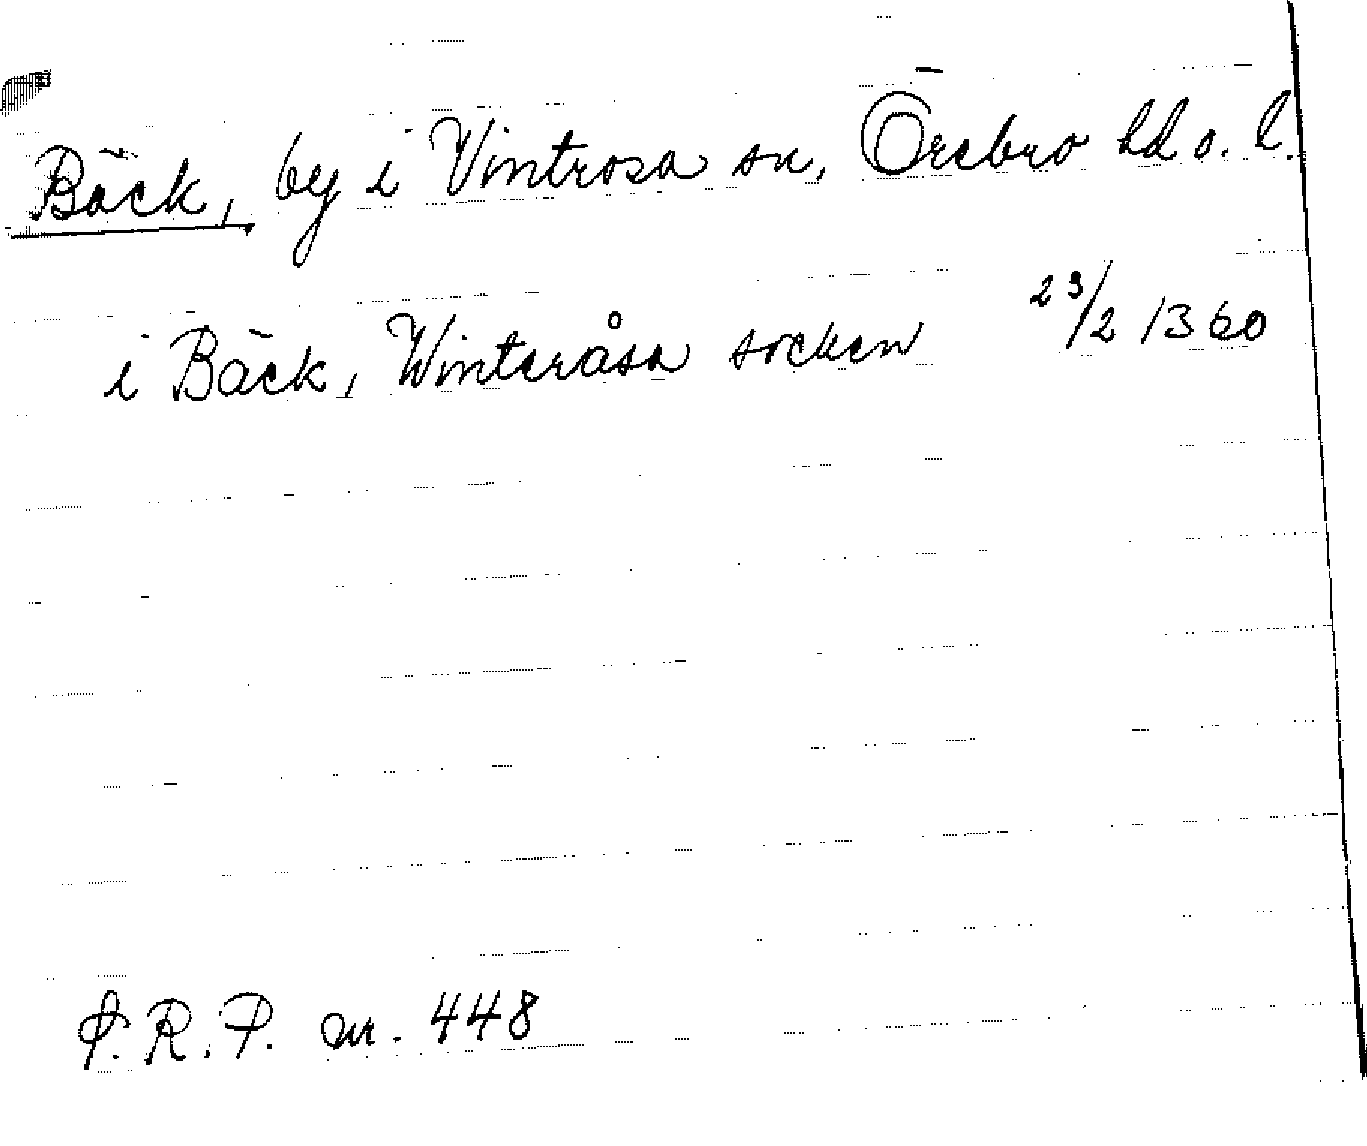 Bäck, by i Vintrosa sn, Örebro hd o. l.
i Bäck, Winteråsa socken 23/2 1360
P.R.P. nr. 448